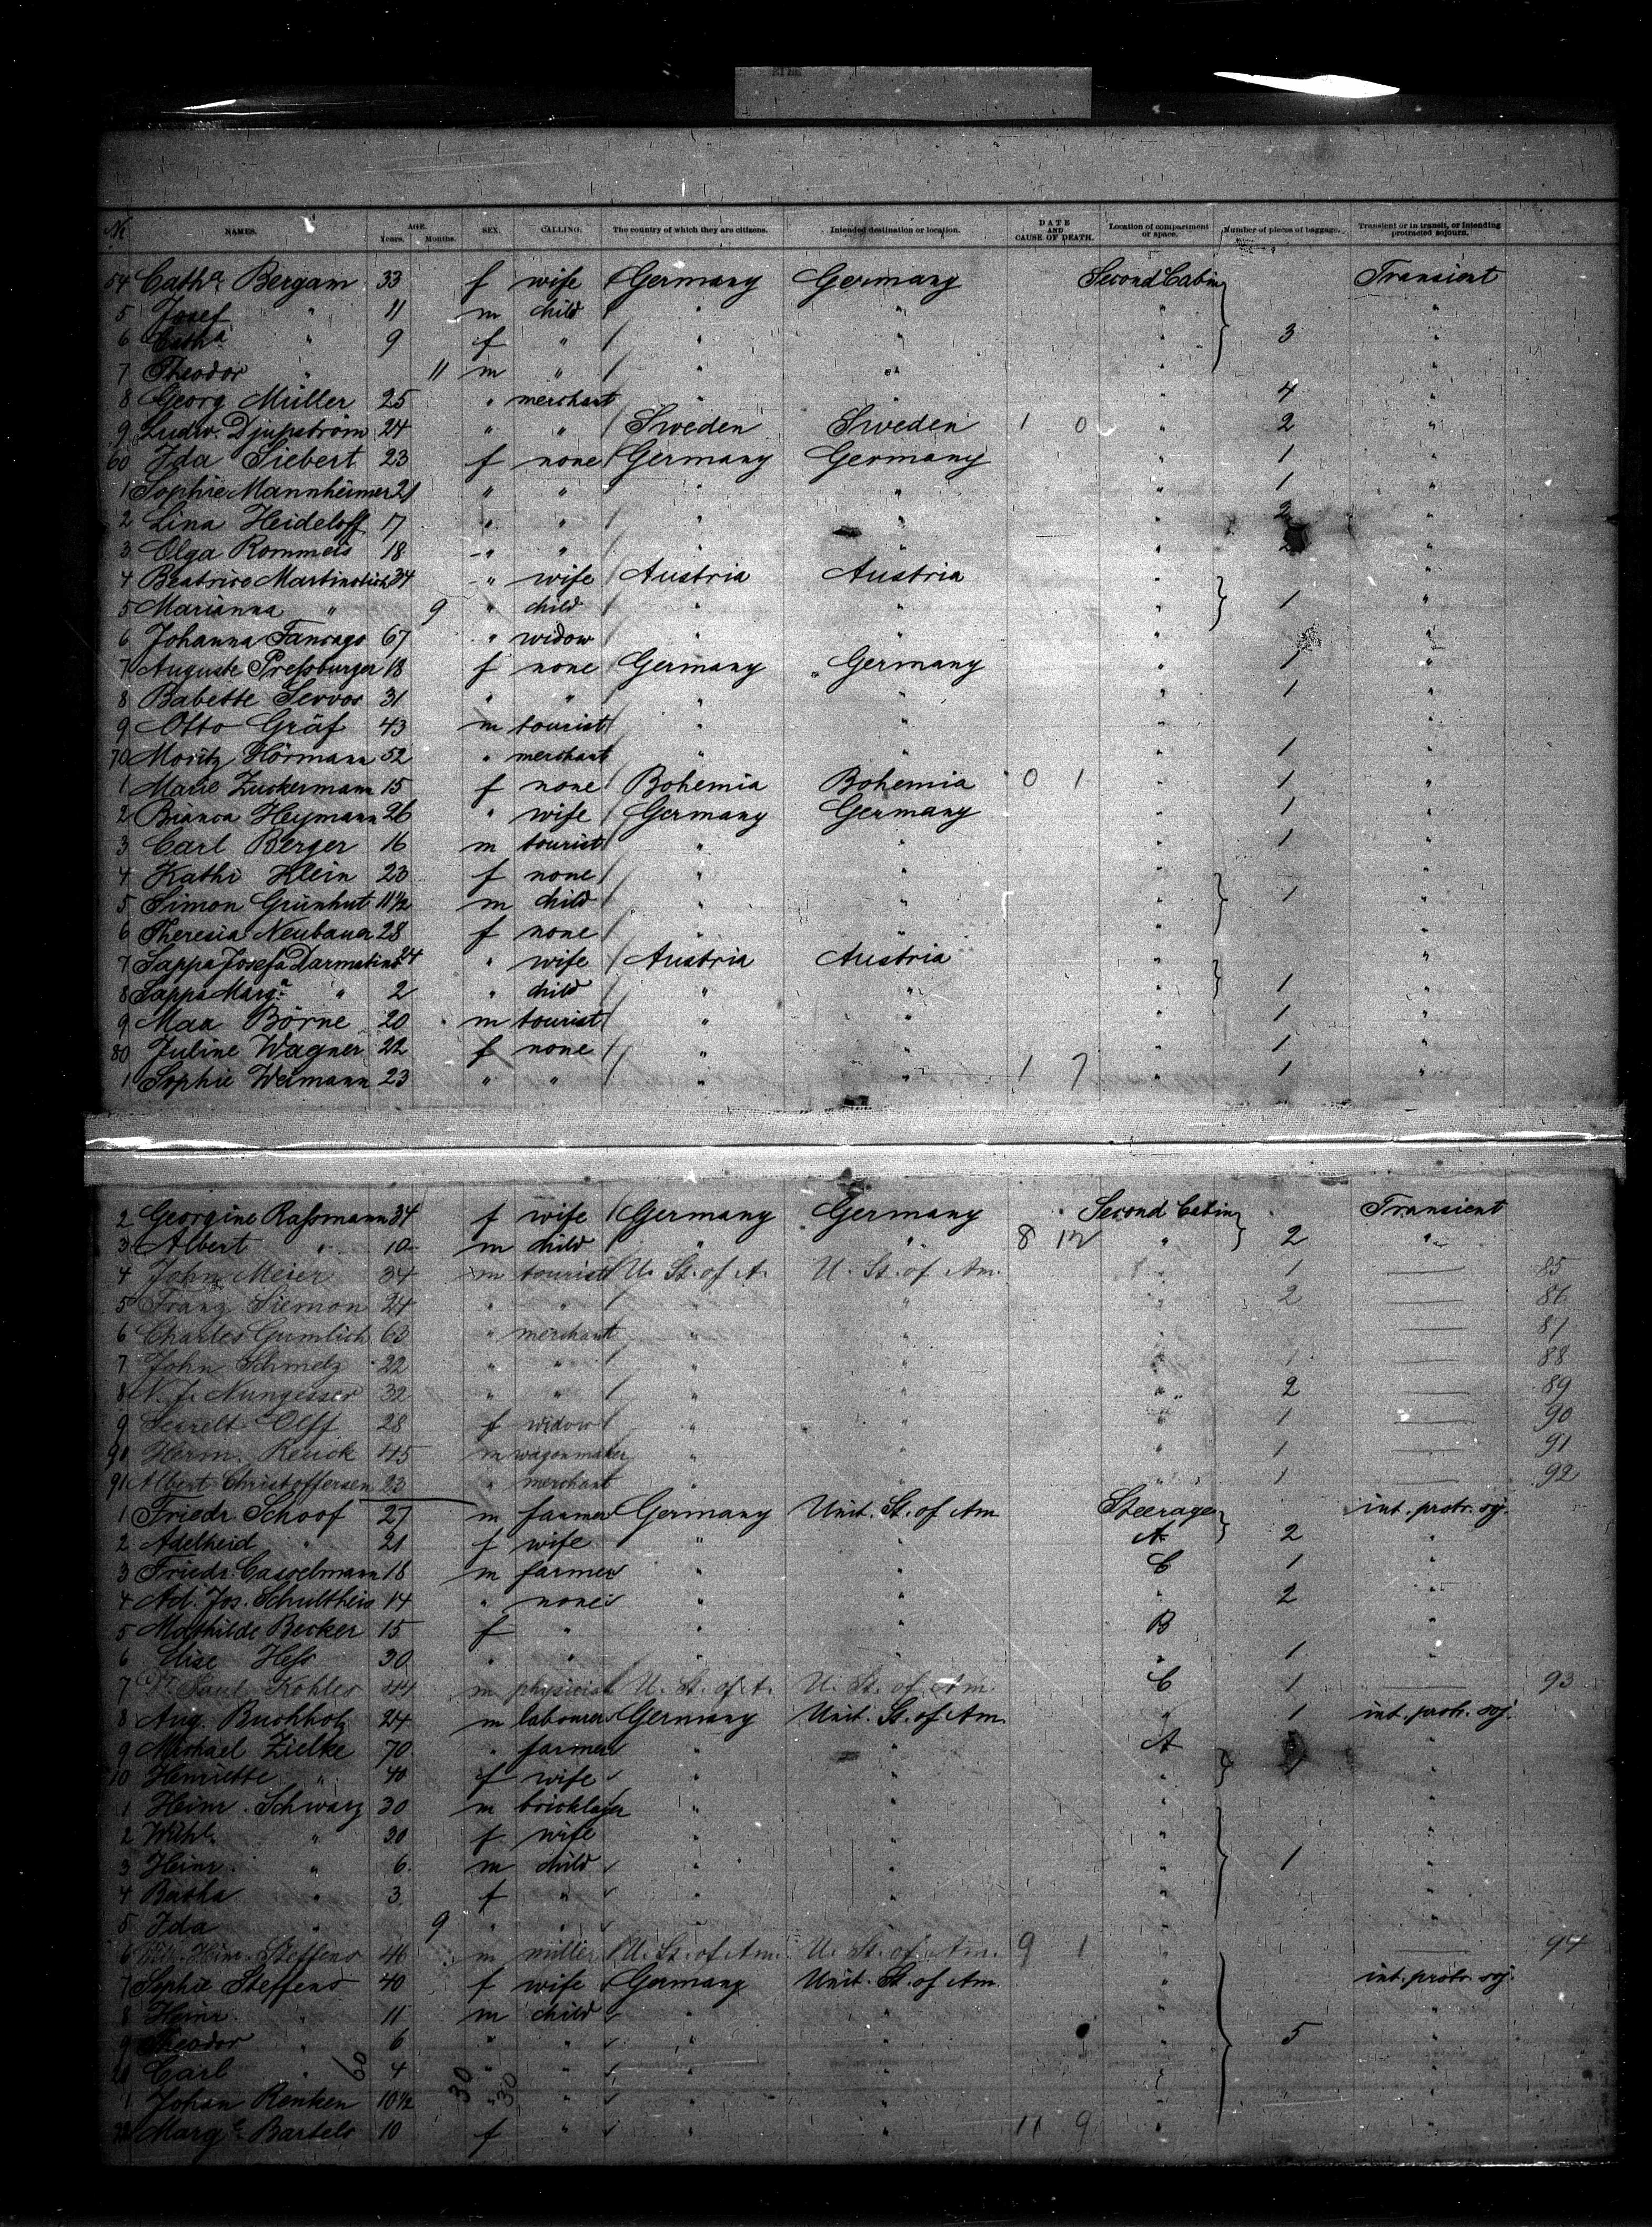 No NAMES. AGE. Years. Months. SEX. CALLING. The country of which they are citizens. Intended destination or location. DATE AND CAUSE OF DEATH. Location of compartment or space. Number of pieces of baggage. Transient or in transit, or intending protracted sojourn.
54 Cathe Bergam 33 f wife Germany Germany Second Cabin Transient
5 Josef " 11 m child " " " "
6 Catha " 9 f " " " " 3 "
7 Theodor " 11 m " " " " "
8 Georg Müller 25 " merchant " " " 4 "
9 Ludw. Djupström 24 " " Sweden Sweden 1 0 " 2 "
60 Ida Siebert 23 f none Germany Germany " 1 "
1 Sophie Mannheimer 21 " " " " " 1 "
2 Lina Heideloff 17 " " " " " 2 "
3 Olga Rommeis 18 " " " " " 2 "
4 Beatrice 34 " wife Austria Austria " "
5 Marianna " 9 " child " " " 1 "
6 Johanna 67 " widow " " " "
7 Auguste Preßburger 18 f none Germany Germany " 1 "
8 Babette 31 " " " " " 1 "
9 Otto Gräf 43 m tourist " " " "
70 Moritz Hörmann 52 " merchant " " " 1 "
1 Marie Zuckermann 15 f none Bohemia Bohemia 0 1 " 1 "
2 Bianca Heymann 26 " wife Germany Germany " 1 "
3 Carl Berger 16 m tourist " " " 1 "
4 Kathi Klein 23 f none " " " "
5 Simon Grünhut 11½ m child " " " 1 "
6 Theresia Neubauer 28 f none " " " "
7 Sappa Josefa 24 " wife Austria Austria " "
8 Sappa Marga " 2 " child " " " 1 "
9 Max Börne 20 m tourist " " " 1 "
80 Juline Wagner 22 f none " " " 1 "
1 Sophie Weimann 23 " " " " 1 7 " 1 "
2 Georgine Raßmann 34 f wife Germany Germany Second Cabin Transient
3 Albert " 10 m child " " 8 12 " 2 "
4 John Meier 34 m tourist U. St. of A. U. St. of Am. " 1 — 85
5 Franz Siemon 24 " " " " " 2 — 86
6 Charles Gumlich 63 " merchant " " " — 87
7 John Schmelz 22 " " " " " 1 — 88
8 N. J. Nungesser 32 " " " " " 2 — 89
9 Olff 28 f widow " " " 1 — 90
90 Herm. Renck 45 m wagonmaker " " " 1 — 91
91 Albert Christoffersen 23 " merchant " " " 1 — 92
1 Friedr. Schoof 27 m farmer Germany Unit. St. of Am. Steerage int. protr. soj.
2 Adelheid " 21 f wife " " A 2 "
3 Friedr. Casselmann 18 m farmer " " C 1 "
4 Ad. Jos. Schultheis 14 " none " " " 2 "
5 Mathilde Becker 15 f " " " B "
6 Elise Heß 30 " " " " " 1 "
7 Dr. Paul Kohler 44 m physician U. St. of A. U. St. of Am. C 1 — 93
8 Aug. Buchholz 24 m labourer Germany Unit. St. of Am. " 1 int. protr. soj.
9 Michael Zielke 70 " farmer " " A "
10 Henriette " 40 f wife " " " 1 "
1 Heinr. Schwarz 30 m bricklayer " " " "
2 Wilhe " 30 f wife " " " "
3 Heinr. " 6 m child " " " 1 "
4 Bertha " 3 f " " " " "
5 Ida " 9 " " " " " "
6 Heinr. Steffens 46 m miller U. St. of Am. U. St. of Am. 9 1 " — 94
7 Sophie Steffens 40 f wife Germany Unit. St. of Am. " int. protr. soj.
8 Heinr. " 11 m child " " " "
9 Theodor " 6 " " " " " 5 "
20 Carl " 4 " " " " " "
1 Johan Renken 10½ " " " " " "
22 Marge Bartels 10 f " " " 11 9 " "
60 30 30